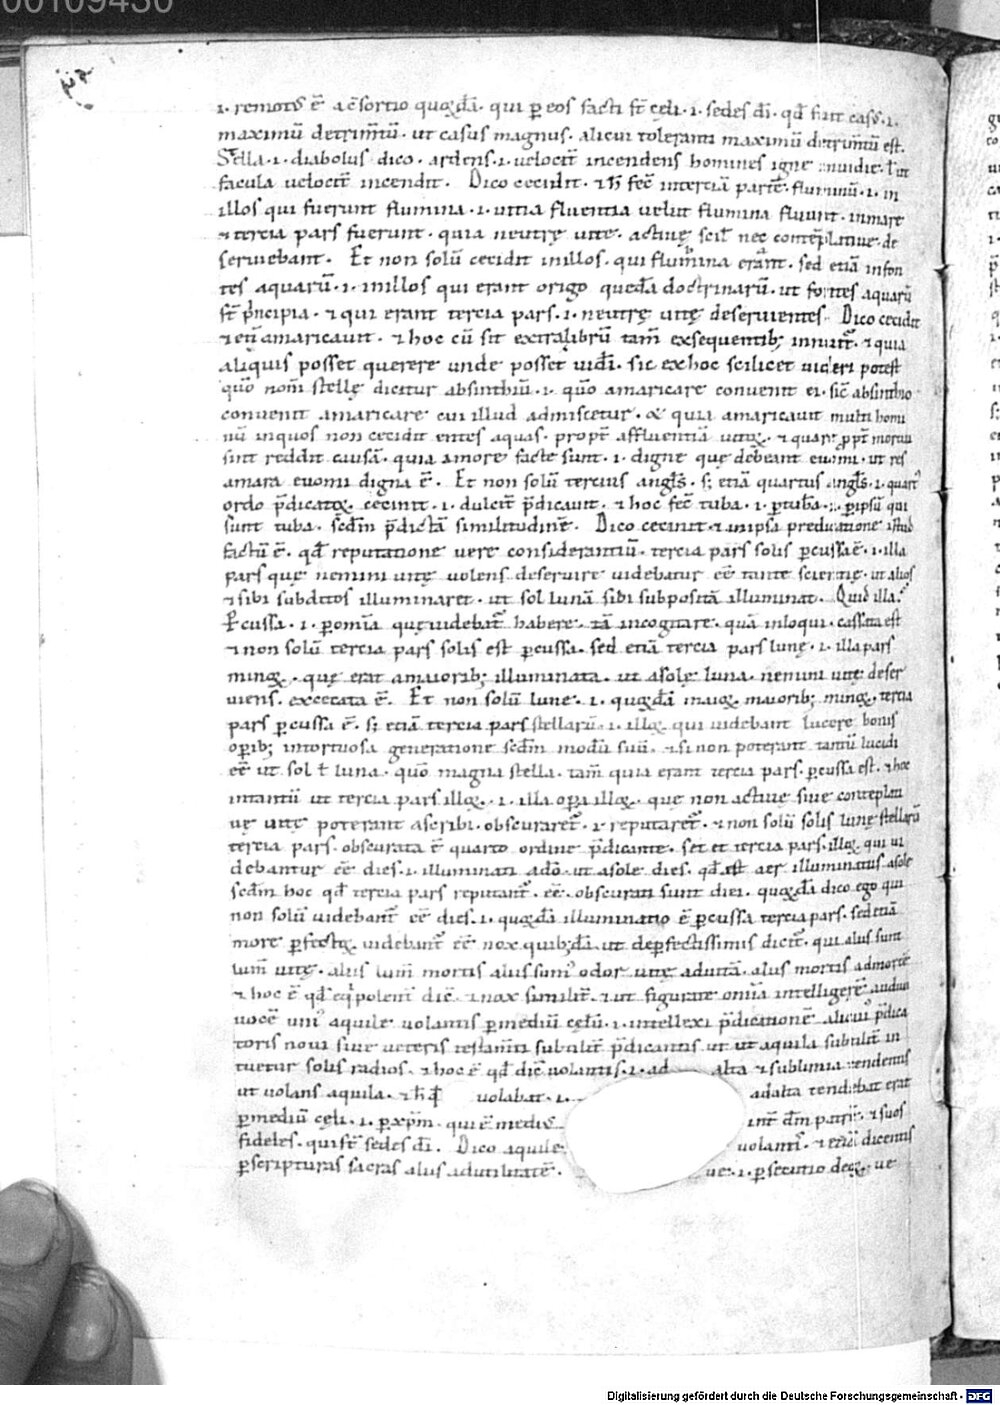 00109430
.i. remotꝰ ē a c̄sortio quoꝝdā. qui ꝑ eos facti st̄ cęli .i. sedes dī. qđ fuit casꝰ .i.
maximū detrim̄tū. ut casus magnus. alicui toleranti maximū detrim̄tū est.
Stella .i. diabolus dico. ardens .i. velocit̄ incendens homines igne inuidie. ł ut
facula velocit̄ incendit. Dico cecidit. ⁊ h̄ fec̄ in terciā partē fluminū .i. in
illos qui fuerunt flumina .i. uitia fluentia velut flumina fluunt in mare
⁊ tercia pars fuerunt. quia neutrę uitę. actiuę scił nec contēplatiuę. de
seruiebant. Et non solū cecidit in illos. qui flumina erant. sed etiā in fon
tes aquarū .i. in illos qui erant origo quedā doctrinarū. ut fontes aquarū
st̄ p̄ncipia. ⁊ qui erant tercia pars .i. neutrę uitę deseruientes. Dico cecidit
⁊ eū amaricauit. ⁊ hoc cū sit extra librū tam̄ exsequentibꝫ innuit̄. ⁊ quia
aliquis posset querere unde posset uidi. sic ex hoc scilicet uideri potest
quō nom̄ stellę dicitur absinthiū .i. quō amaricare conuenit ei. sic̄ absinthio
conuenit amaricare cui illud admiscetur. & quia amaricauit multi homi
nū in quos non cecidit entes aquas. propt̄ affluentiā uitioꝝ. ⁊ quare ꝓpt̄ mortui
sint reddit causā. quia amare facte sunt .i. digne que debeant euomi. ut res
amara euomi digna ē. Et non solū tercius angłs. sꝫ etiā quartus angłs .i. quart
ordo p̄dicatoꝝ. cecinit .i. dulcit̄ p̄dicauit. ⁊ hoc fec̄ tuba .i. ꝑ tubā .i. ꝑ ipsū qui
sunt tuba. scdm̄ p̄dictā similitudinē. Dico cecinit ⁊ in ipsa predicatione istud
factū ē. qđ reputatione vere considerantiū. tercia pars solis ꝑcussa ē .i. illa
pars quę nemini uitę uolens deseruire uidebatur eē tante scientię. ut alios
⁊ sibi subditos illuminaret. ut sol lunā sibi subpositā illuminat. Quid illa?
Ꝑcussa .i. ꝑ omīa quę uidebat̄ habere. tā in cogitare. quā in loqui. cassata est
⁊ non solū tercia pars solis est ꝑcussa. sed etiā tercia pars lunę .i. illa pars
minoꝝ. quę erat a maioribꝫ illuminata. ut a sole luna. nemini uitę deser
uiens. excecata ē. Et non solū lune .i. quoꝝdā maioꝝ. maioribꝫ minoꝝ. tercia
pars ꝑcussa ē. sꝫ etiā tercia pars stellarū .i. illoꝝ qui uidebant lucere bonis
oꝑibꝫ in tortuosa generatione scdm̄ modū suū. ⁊ si non poterant tantū lucidi
eē ut sol ł luna. quō magna stella. tam̄ quia erant tercia pars. ꝑcussa est. ⁊ hoc
in tantū ut tercia pars illoꝝ .i. illa oꝑa illoꝝ. que non actiuę siue contēplati
uę uitę poterant ascribi. obscuraret̄ .i. reputaret̄. ⁊ non solū solis lunę stellarū
tercia pars. obscurata ē quarto ordine p̄dicante. set et tercia pars. illoꝝ qui ui
debantur eē dies .i. illuminati a dō. ut a sole dies. qđ est aer illuminatus a sole
scdm̄ hoc qđ tercia pars reputant̄ eē. obscurati sunt diei. quoꝝdā dico ego qui
non solū uidebant̄ eē dies .i. quoꝝdā illuminatio ē ꝑcussa tercia pars. sed etiā
more ꝑfectoꝝ. uidebant̄ eē nox quibꝫdā. ut de ꝑfectissimis dicit̄. qui aliis sunt
lum̄ uitę. aliis lum̄ mortis aliis sumꝰ odor uitę ad uitā. aliis mortis ad mortē
⁊ hoc ē qđ eq̇polent̄ dic̄. ⁊ nox similit̄. ⁊ ut figurate omīa intelligerē audiui
uocē uniꝰ aquile uolantis ꝑ mediū cęlū .i. intellexi p̄dicationē alicuiꝰ p̄dica
toris noui siue ueteris testam̄ti subtilit̄ p̄dicantis ut ut aquila subtilit̄ in
tuetur solis radios. ⁊ hoc ē qđ dic̄ uolantis .i. ad alta ⁊ sublimia tendentis
ut uolans aquila. ⁊ h̄ uolabat .i. ad alta tendebat erat
ꝑ mediū cęli .i. ꝑ xp̄m. qui ē mediꝰ int̄ dm̄ patrē. ⁊ suos
fideles. qui st̄ sedes dī. Dico aquile uolantis. ⁊ etiā dicentis
ꝑ scripturas sacras aliis ad utilitatē. ue .i. ꝑsecutio ue
Digitalisierung gefördert durch die Deutsche Forschungsgemeinschaft - DFG